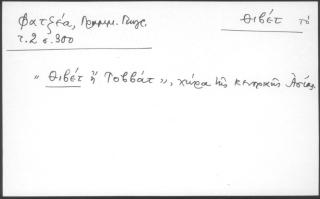 Φατζέα, Γραμμ. Γεωγρ. Θιβέτ τό
τ. 2 σ. 300
" Θιβέτ ἤ Τοββάτ ", χώρα τῆς κεντρικῆς Ἀσίας.